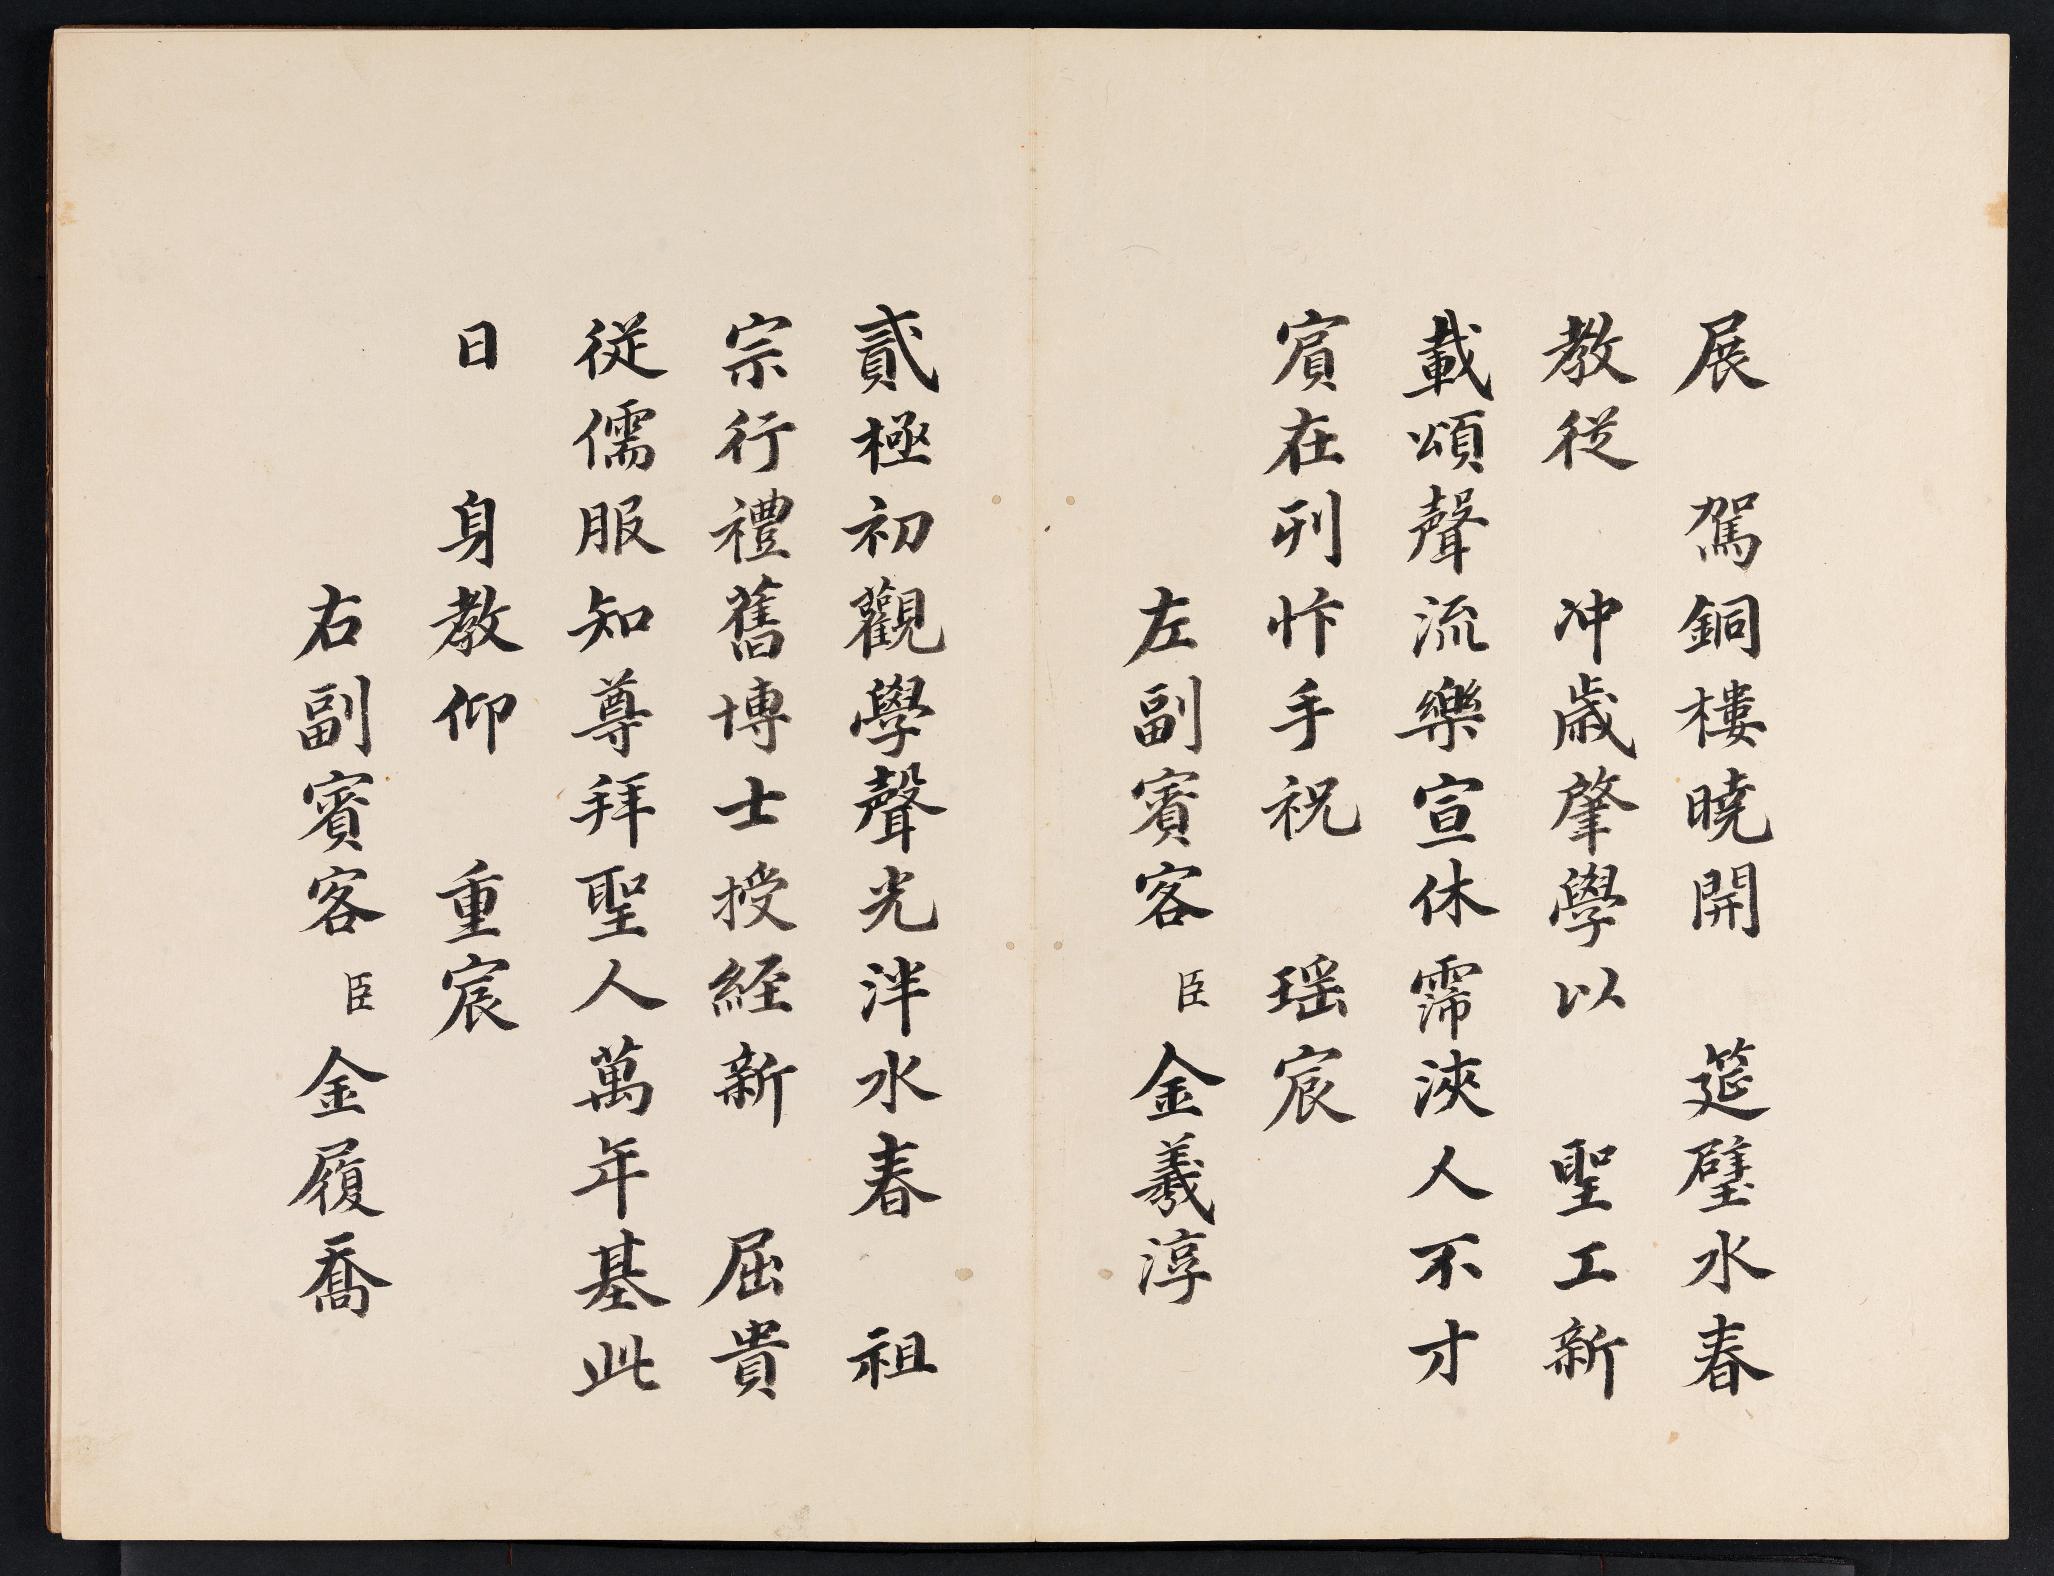 展 駕銅樓曉開 筵璧水春
教從 冲歲肇學以 聖工新
載頌聲流樂宣休霈浹人不才
賔在列忭手祝 瑶宸
左副賓客 臣 金羲淳
貳極初觀學聲光泮水春 祖
宗行禮舊博士授経新 屈貴
従儒服知尊拜聖人萬年基此
日 身教仰 重宸
右副賓客 臣 金履喬